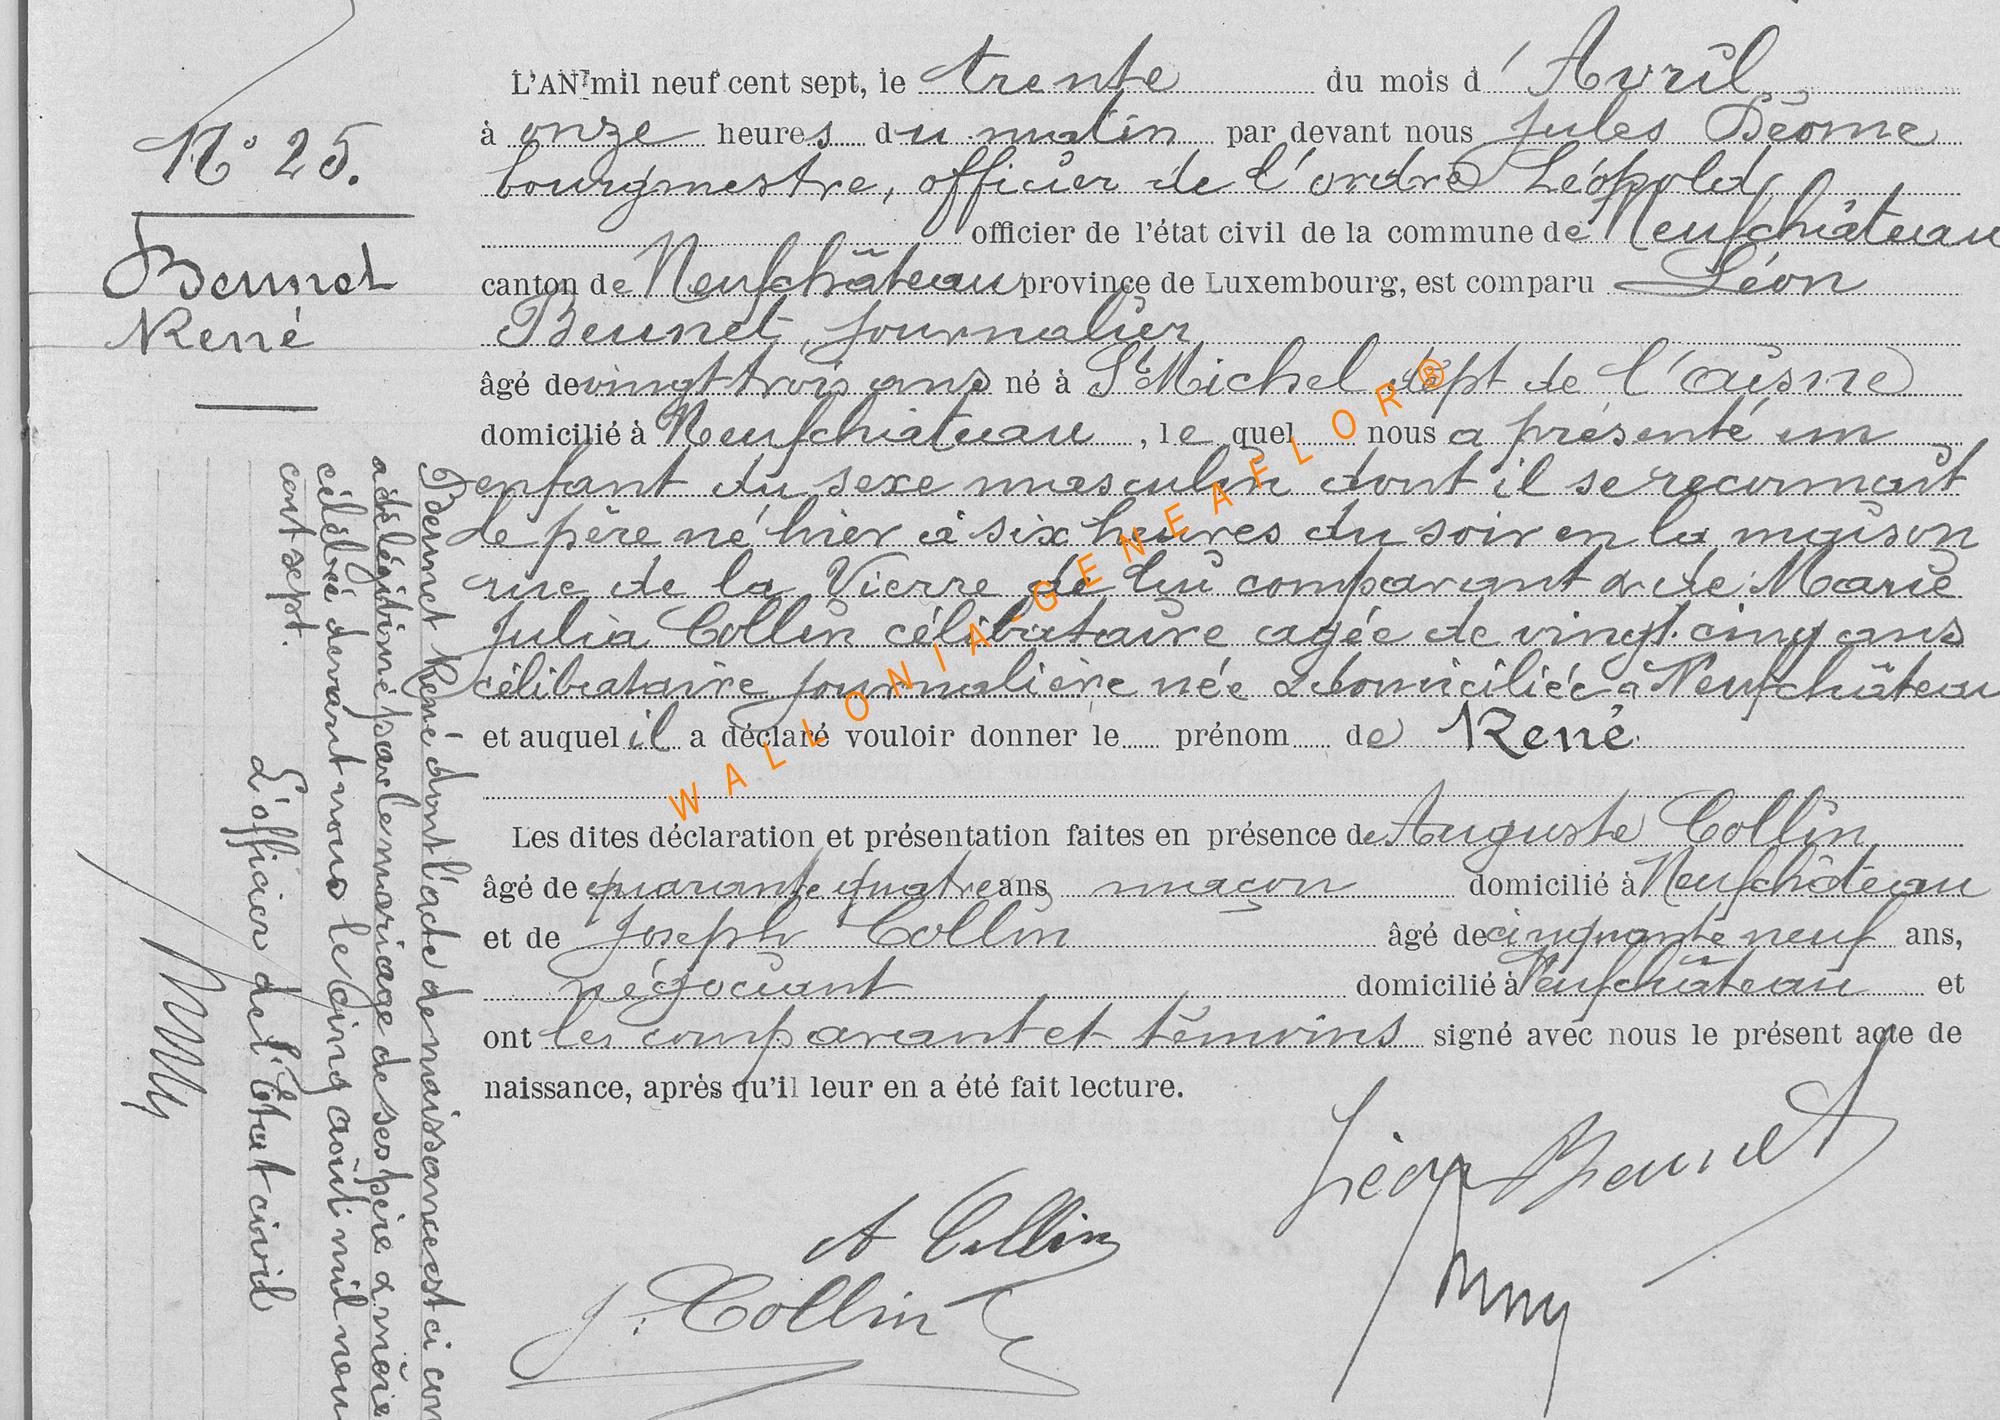 N° 25.
Beunet
René
L'AN mil neuf cent sept, le trente du mois d'Avril
à onze heures du matin par devant nous Jules Béome
bourgmestre, officier de l'ordre Léopold
officier de l'état civil de la commune de Neufchâteau
canton de Neufchâteau province de Luxembourg, est comparu Léon
Beunet, journalier
âgé de vingt trois ans né à St Michel dept de l'aisne
domicilié à Neufchâteau, le quel nous a présenté un
enfant du sexe masculin dont il se reconnait
le père né hier à six heures du soir en la maison
rue de la Vierre de lui comparant & de Marie
Julia Collin célibataire agée de vingt.cinq ans
célibataire journalière née & domiciliée à Neufchâteau
et auquel il a déclaré vouloir donner le prénom de René
Les dites déclaration et présentation faites en présence de Auguste Collin
âgé de quarante quatre ans maçon domicilié à Neufchâteau
et de Joseph Collin âgé de cinquante neuf ans,
négociant domicilié à Neufchâteau et
ont les comparant et témoins signé avec nous le présent acte de
naissance, après qu'il leur en a été fait lecture.
Léon Beunet
A Collin
J. Collin
Beunet René dont l'acte de naissance est ci con
a été légitimé par le mariage de ses père & mère
célébré devant nous le cinq août mil neuf
cent sept.
L'officier de l'Etat civil
WALLONIA-GENEAFLOR®